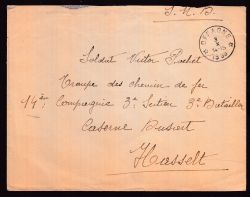 S. M. B.
OFFAGNE
Soldat Victor Pochet
Troupe des chemin de fer
14e Compagnie 3e Section 3e Bataillon
Caserne
Hasselt